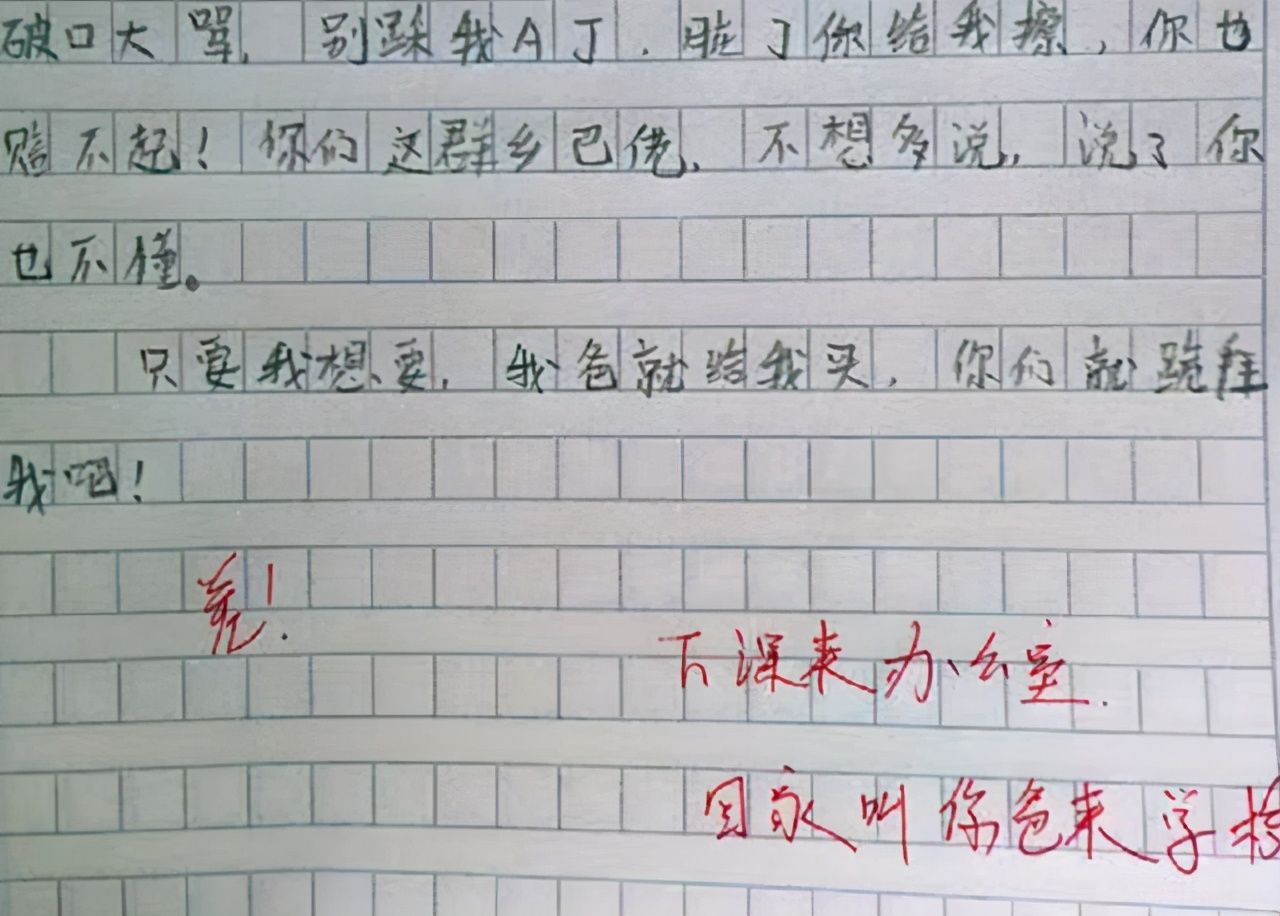 破口大骂，别踩我AJ，脏了你给我擦，你也
赔不起！你们这群乡巴佬，不想多说，说了你
也不懂。
只要我想要，我爸就给我买，你们就跪拜
我吧！
下课来办公室.
回家叫你爸来学校